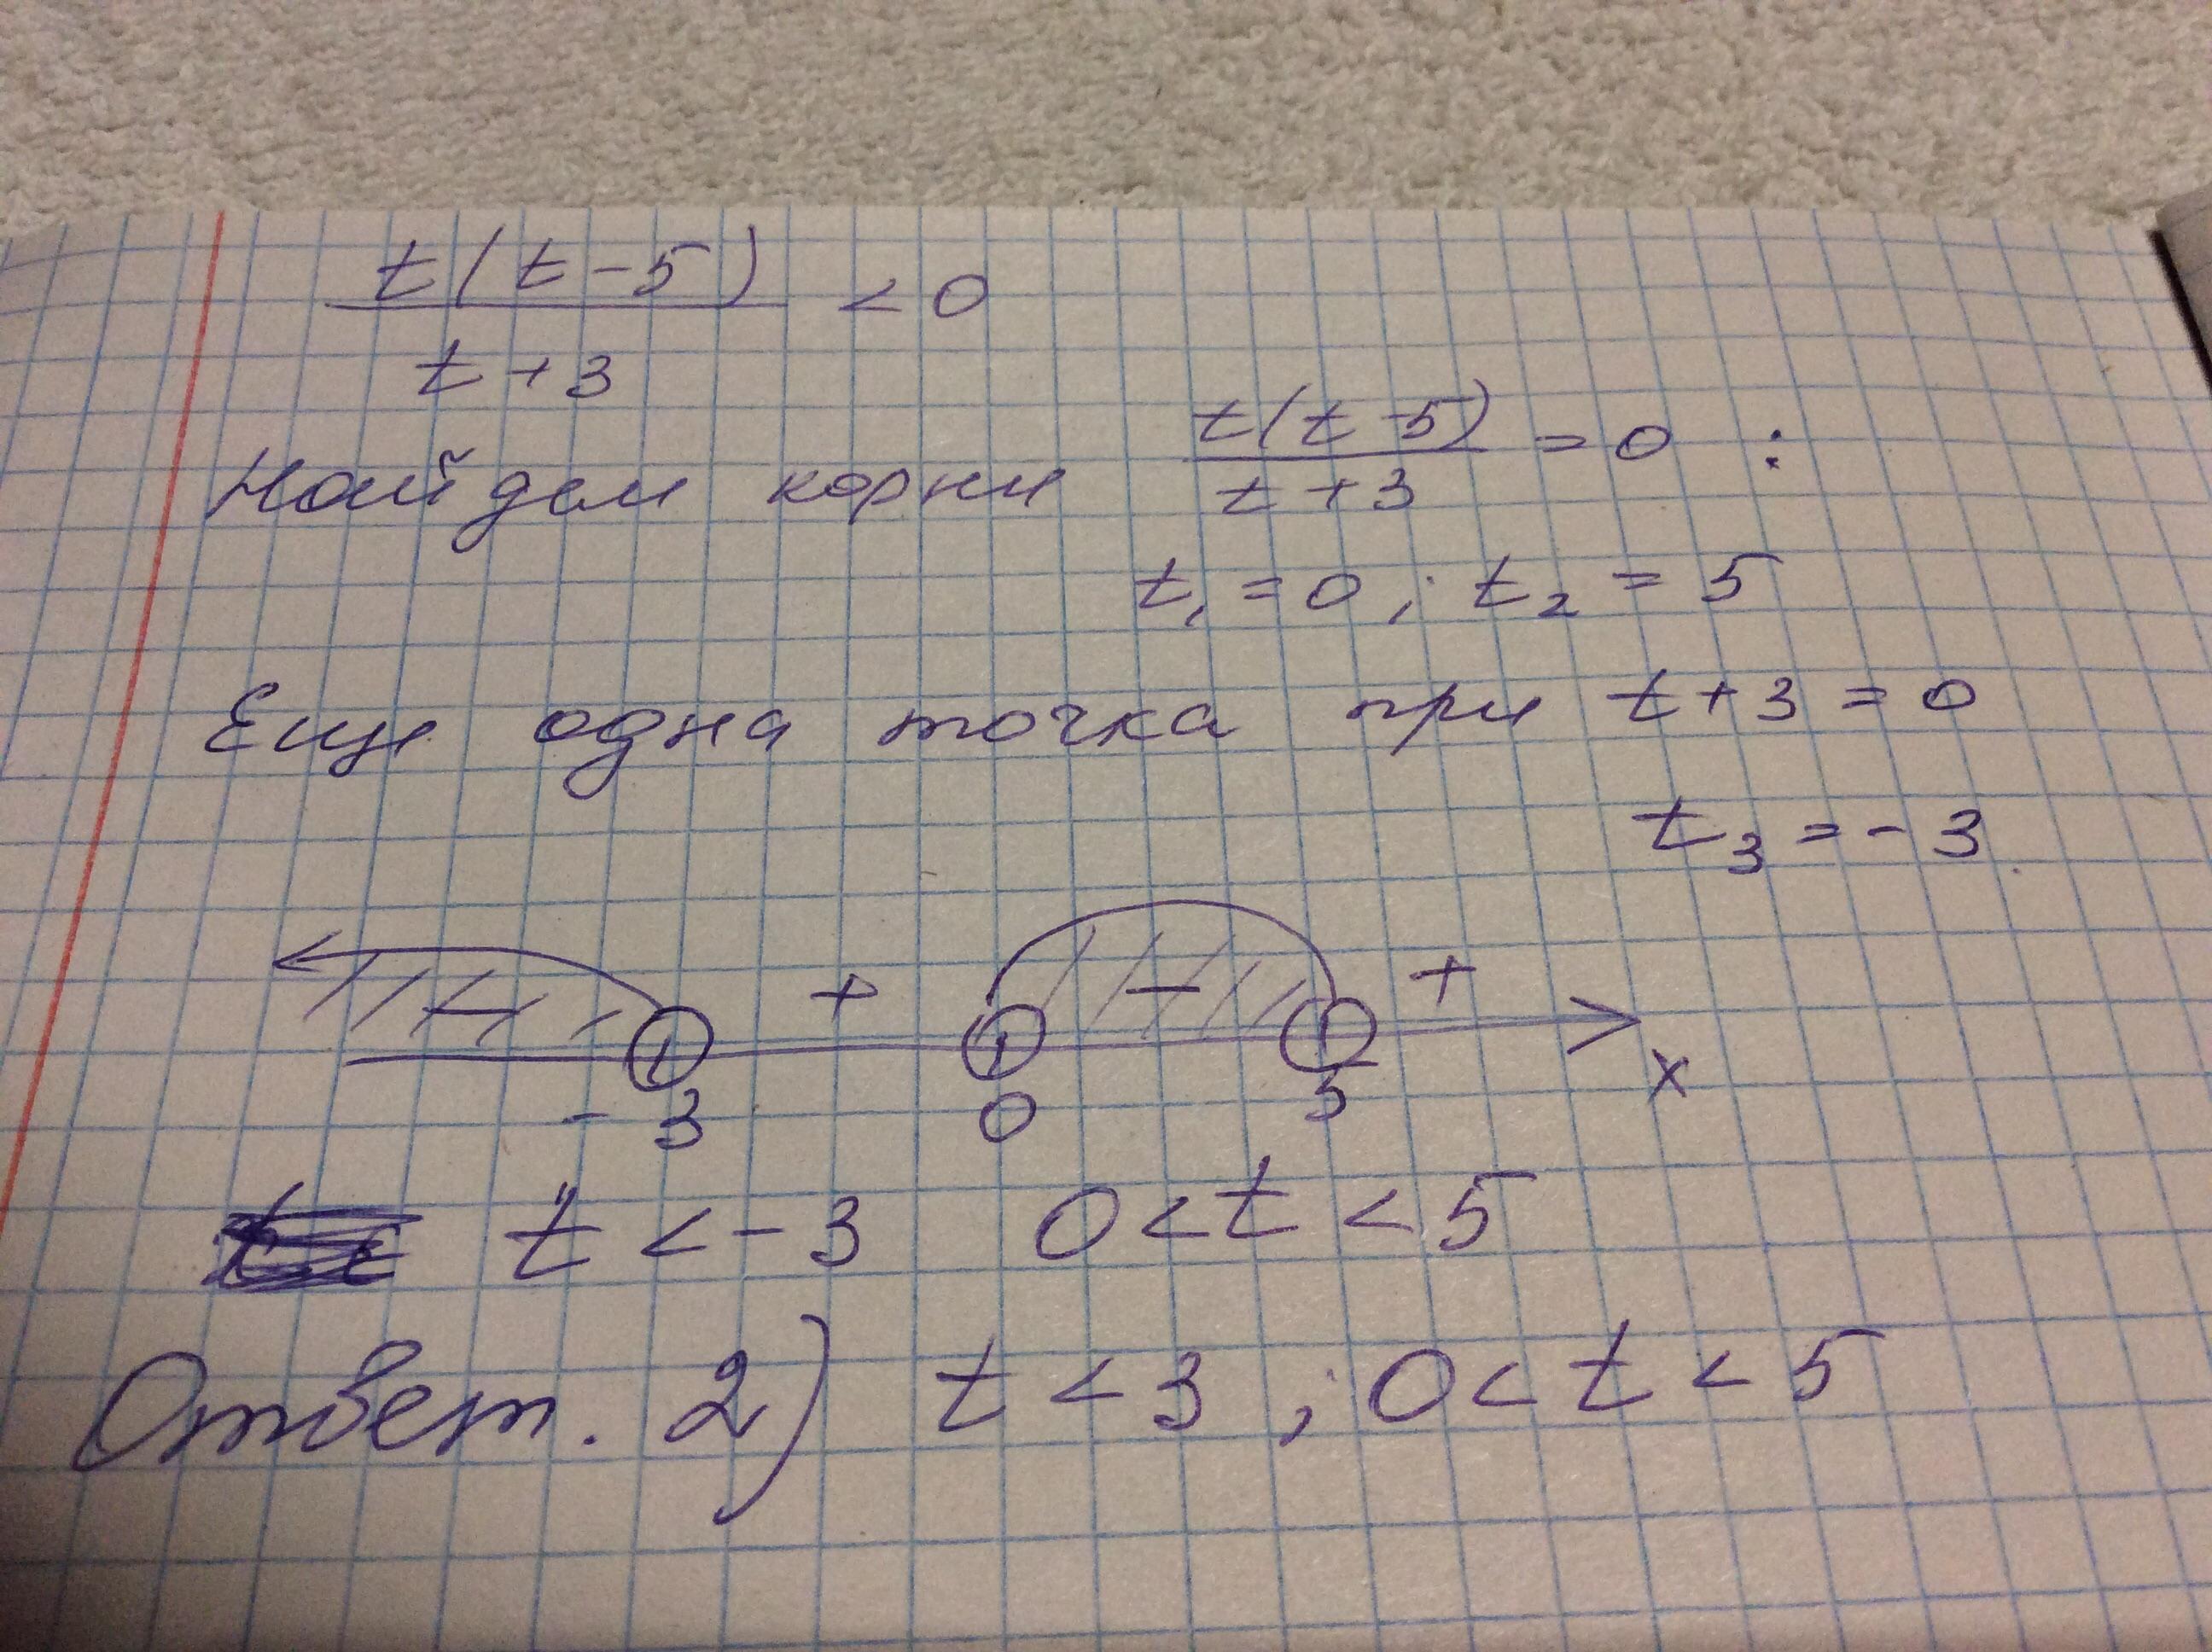 t(t-5)/t+3 < 0
Найдем корни t(t-5)/t+3 = 0 :
t₁ = 0 ; t₂ = 5
Еще одна точка при t+3 = 0
t₃ = -3
- + - +
-3 0 5 x
t < -3 0 < t < 5
Ответ. 2) t < 3 ; 0 < t < 5